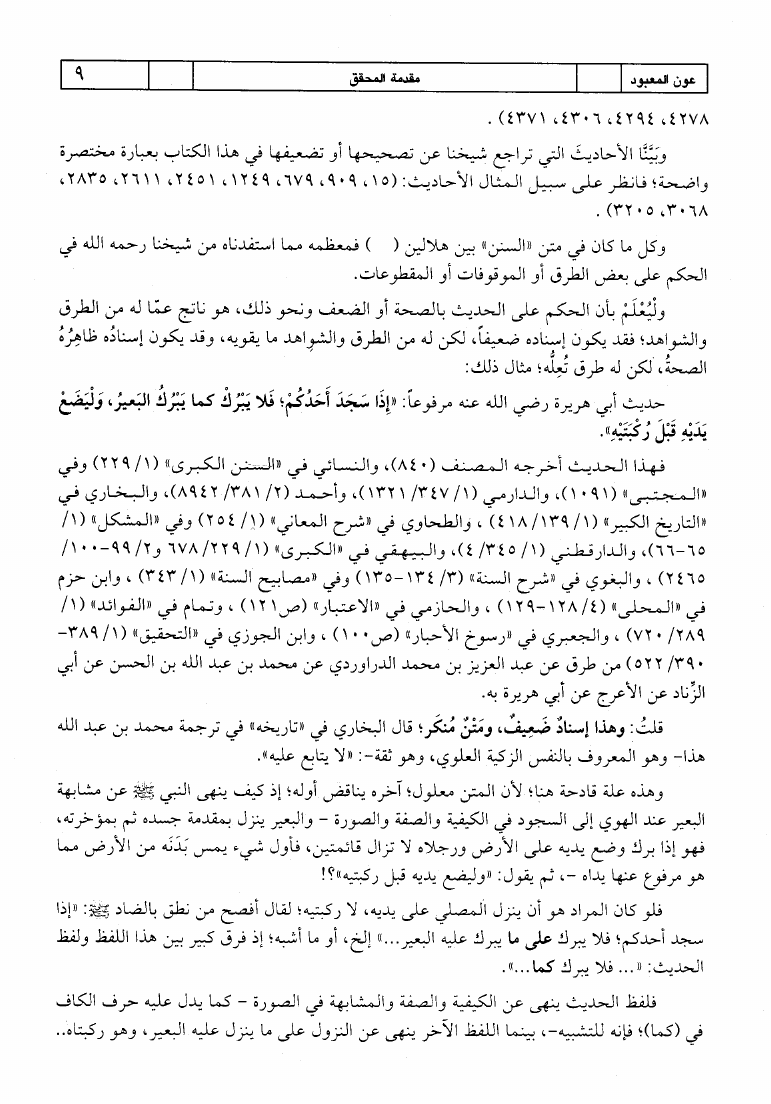 عون المعبود مقدمة المحقق ٩
٤٢٧٨، ٤٢٩٤، ٤٣٠٦، ٤٣٧١) .
وَبَيَّنَّا الأحاديثَ التي تراجع شيخنا عن تصحيحها أو تضعيفها في هذا الكتاب بعبارة مختصرة
واضحة؛ فانظر على سبيل المثال الأحاديث: (١٥، ٩٠٩، ٦٧٩، ١٢٤٩، ٢٤٥١، ٢٦١١، ٢٨٣٥،
٣٠٦٨، ٣٢٠٥) .
وكل ما كان في متن «السنن» بين هلالين ( ) فمعظمه مما استفدناه من شيخنا رحمه الله في
الحكم على بعض الطرق أو الموقوفات أو المقطوعات.
ولْيُعْلَمْ بأن الحكم على الحديث بالصحة أو الضعف ونحو ذلك، هو ناتج عمّا له من الطرق
والشواهد؛ فقد يكون إسناده ضعيفاً، لكن له من الطرق والشواهد ما يقويه، وقد يكون إسنادُه ظاهِرُهُ
الصحةُ، لكن له طرق تُعِلُّه؛ مثال ذلك:
حديث أبي هريرة رضي الله عنه مرفوعاً: «إِذَا سَجَدَ أَحَدُكُمْ؛ فَلا يَبْرُكْ كما يَبْرُكُ البَعيرُ، وَلْيَضَعْ
يَدَيْهِ قَبْلَ رُكْبَتَيْهِ».
فهذا الحديث أخرجه المصنف (٨٤٠)، والنسائي في «السنن الكبرى» (١/ ٢٢٩) وفي
«المجتبى» (١٠٩١)، والدارمي (١/ ٣٤٧/ ١٣٢١)، وأحمد (٢/ ٣٨١/ ٨٩٤٢)، والبخاري في
«التاريخ الكبير» (١/ ١٣٩/ ٤١٨) ، والطحاوي في «شرح المعاني» (١/ ٢٥٤) وفي «المشكل» (١/
٦٥-٦٦)، والدارقطني (١/ ٣٤٥/ ٤)، والبيهقي في «الكبرى» (١/ ٢٢٩/ ٦٧٨ و٢/ ٩٩-١٠٠/
٢٤٦٥) ، والبغوي في «شرح السنة» (٣/ ١٣٤-١٣٥) وفي «مصابيح السنة» (١/ ٣٤٣) ، وابن حزم
في «المحلى» (٤/ ١٢٨-١٢٩) ، والحازمي في «الاعتبار» (ص١٢١) ، وتمام في «الفوائد» (١/
٢٨٩/ ٧٢٠) ، والجعبري في «رسوخ الأحبار» (ص١٠٠) ، وابن الجوزي في «التحقيق» (١/ ٣٨٩-
٣٩٠/ ٥٢٢) من طرق عن عبد العزيز بن محمد الدراوردي عن محمد بن عبد الله بن الحسن عن أبي
الزِّناد عن الأعرج عن أبي هريرة به.
قلتُ: وهذا إسنادٌ ضَعِيفٌ، ومَتْنٌ مُنكَر؛ قال البخاري في «تاريخه» في ترجمة محمد بن عبد الله
هذا- وهو المعروف بالنفس الزكية العلوي، وهو ثقة-: «لا يتابع عليه».
وهذه علة قادحة هنا؛ لأن المتن معلول؛ آخره يناقض أوله؛ إذ كيف ينهى النبي ﷺ عن مشابهة
البعير عند الهوي إلى السجود في الكيفية والصفة والصورة - والبعير ينزل بمقدمة جسده ثم بمؤخرته،
فهو إذا برك وضع يديه على الأرض ورجلاه لا تزال قائمتين، فأول شيء يمس بَدَنَه من الأرض مما
هو مرفوع عنها يداه -، ثم يقول: «وليضع يديه قبل ركبتيه»؟!
فلو كان المراد هو أن ينزل المصلي على يديه، لا ركبتيه؛ لقال أفصح من نطق بالضاد ﷺ: «إذا
سجد أحدكم؛ فلا يبرك على ما يبرك عليه البعير...» إلخ، أو ما أشبه؛ إذ فرق كبير بين هذا اللفظ ولفظ
الحديث: «... فلا يبرك كما...».
فلفظ الحديث ينهى عن الكيفية والصفة والمشابهة في الصورة - كما يدل عليه حرف الكاف
في (كما)؛ فإنه للتشبيه-، بينما اللفظ الآخر ينهى عن النزول على ما ينزل عليه البعير، وهو ركبتاه..